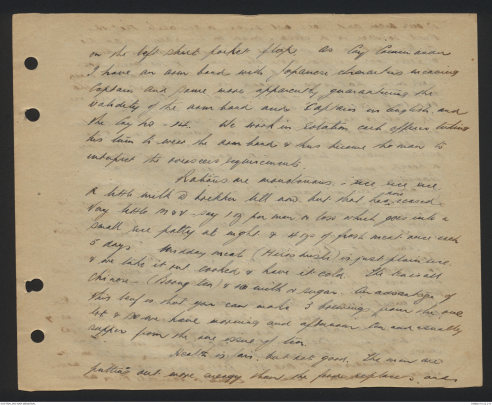 on the left shirt pocket flaps. As Coy Commander
I have an arm band with Japanese characters meaning
Captain and some more apparently guaranteeing the
validity of the arm band and "Captain" in English and
the Coy No. We work in rotation each officer taking
his turn to wear the arm band & thus become the man to
interpret the overseers requirements.
Rations are monotonous. - rice rice rice.
A little milk till now but that has now ceased.
Very little M & V - say 1 oz per man or less which goes into a
small rice patty at night & 4 ozs of fresh meat once each
5 days. Midday meal is just plain rice
& we take it out cooked & have it cold. Tea is
Chinese & no milk or sugar. An advantage of
this tea is that you can make 3 from the one
lot & we have morning and afternoon tea and usually
supper from the one issue of tea.
Health is fair, but not good. The men are
putting out more energy than the food replaces, and